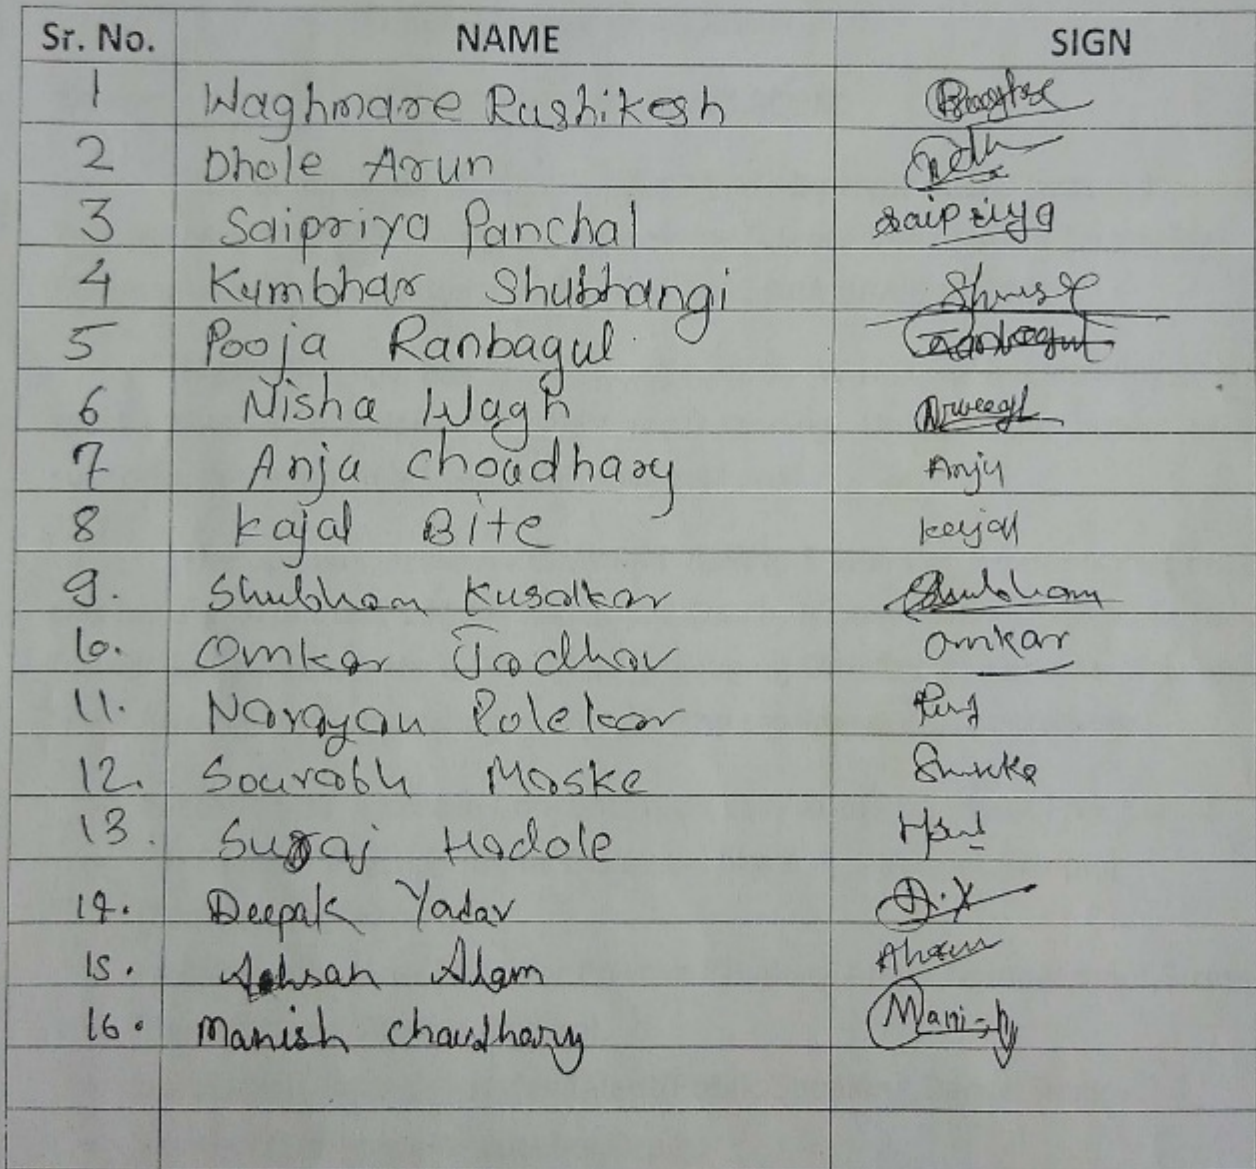 Sr. No. NAME SIGN
1 Waghmare Rushikesh
2 Dhole Arun
3 Saipriya Panchal saipriya
4 Kumbhar Shubhangi
5 Pooja Ranbagul Ranbagul
6 Nisha Wagh
7 Anja Choudhary Anju
8 Kajal Bite kajal
9. Shubham Kusalkar Shubham
10. Omkar Jadhav Omkar
11. Narayan Polekar
12. Sourabh Maske
13. Suraj Hadole
14. Deepak Yadav D.Y
15. Ahsan Alam
16. Manish Chaudhary Manish